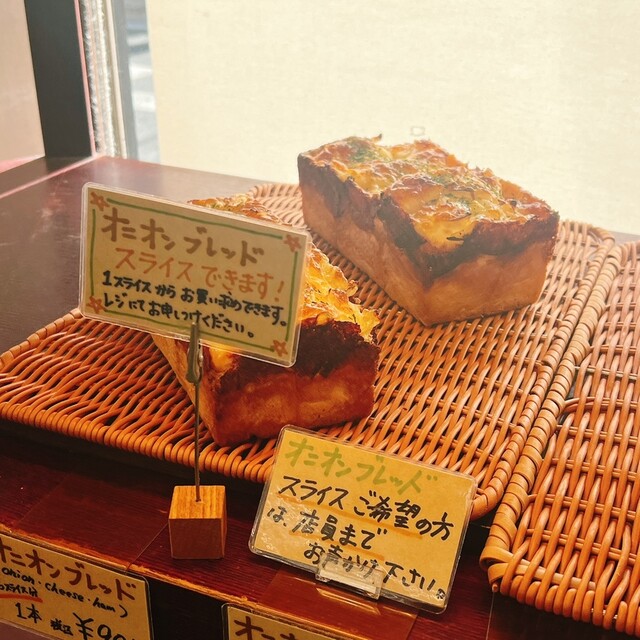 オニオンブレッド
スライスできます!
1スライスから お買い求めできます。
レジにてお申しつけください。
オニオンブレッド
スライス ご希望の方
は、店員まで
お声がけ下さい。
オニオンブレッド
(onion. cheese. ham)
1本 ¥90
オニオン